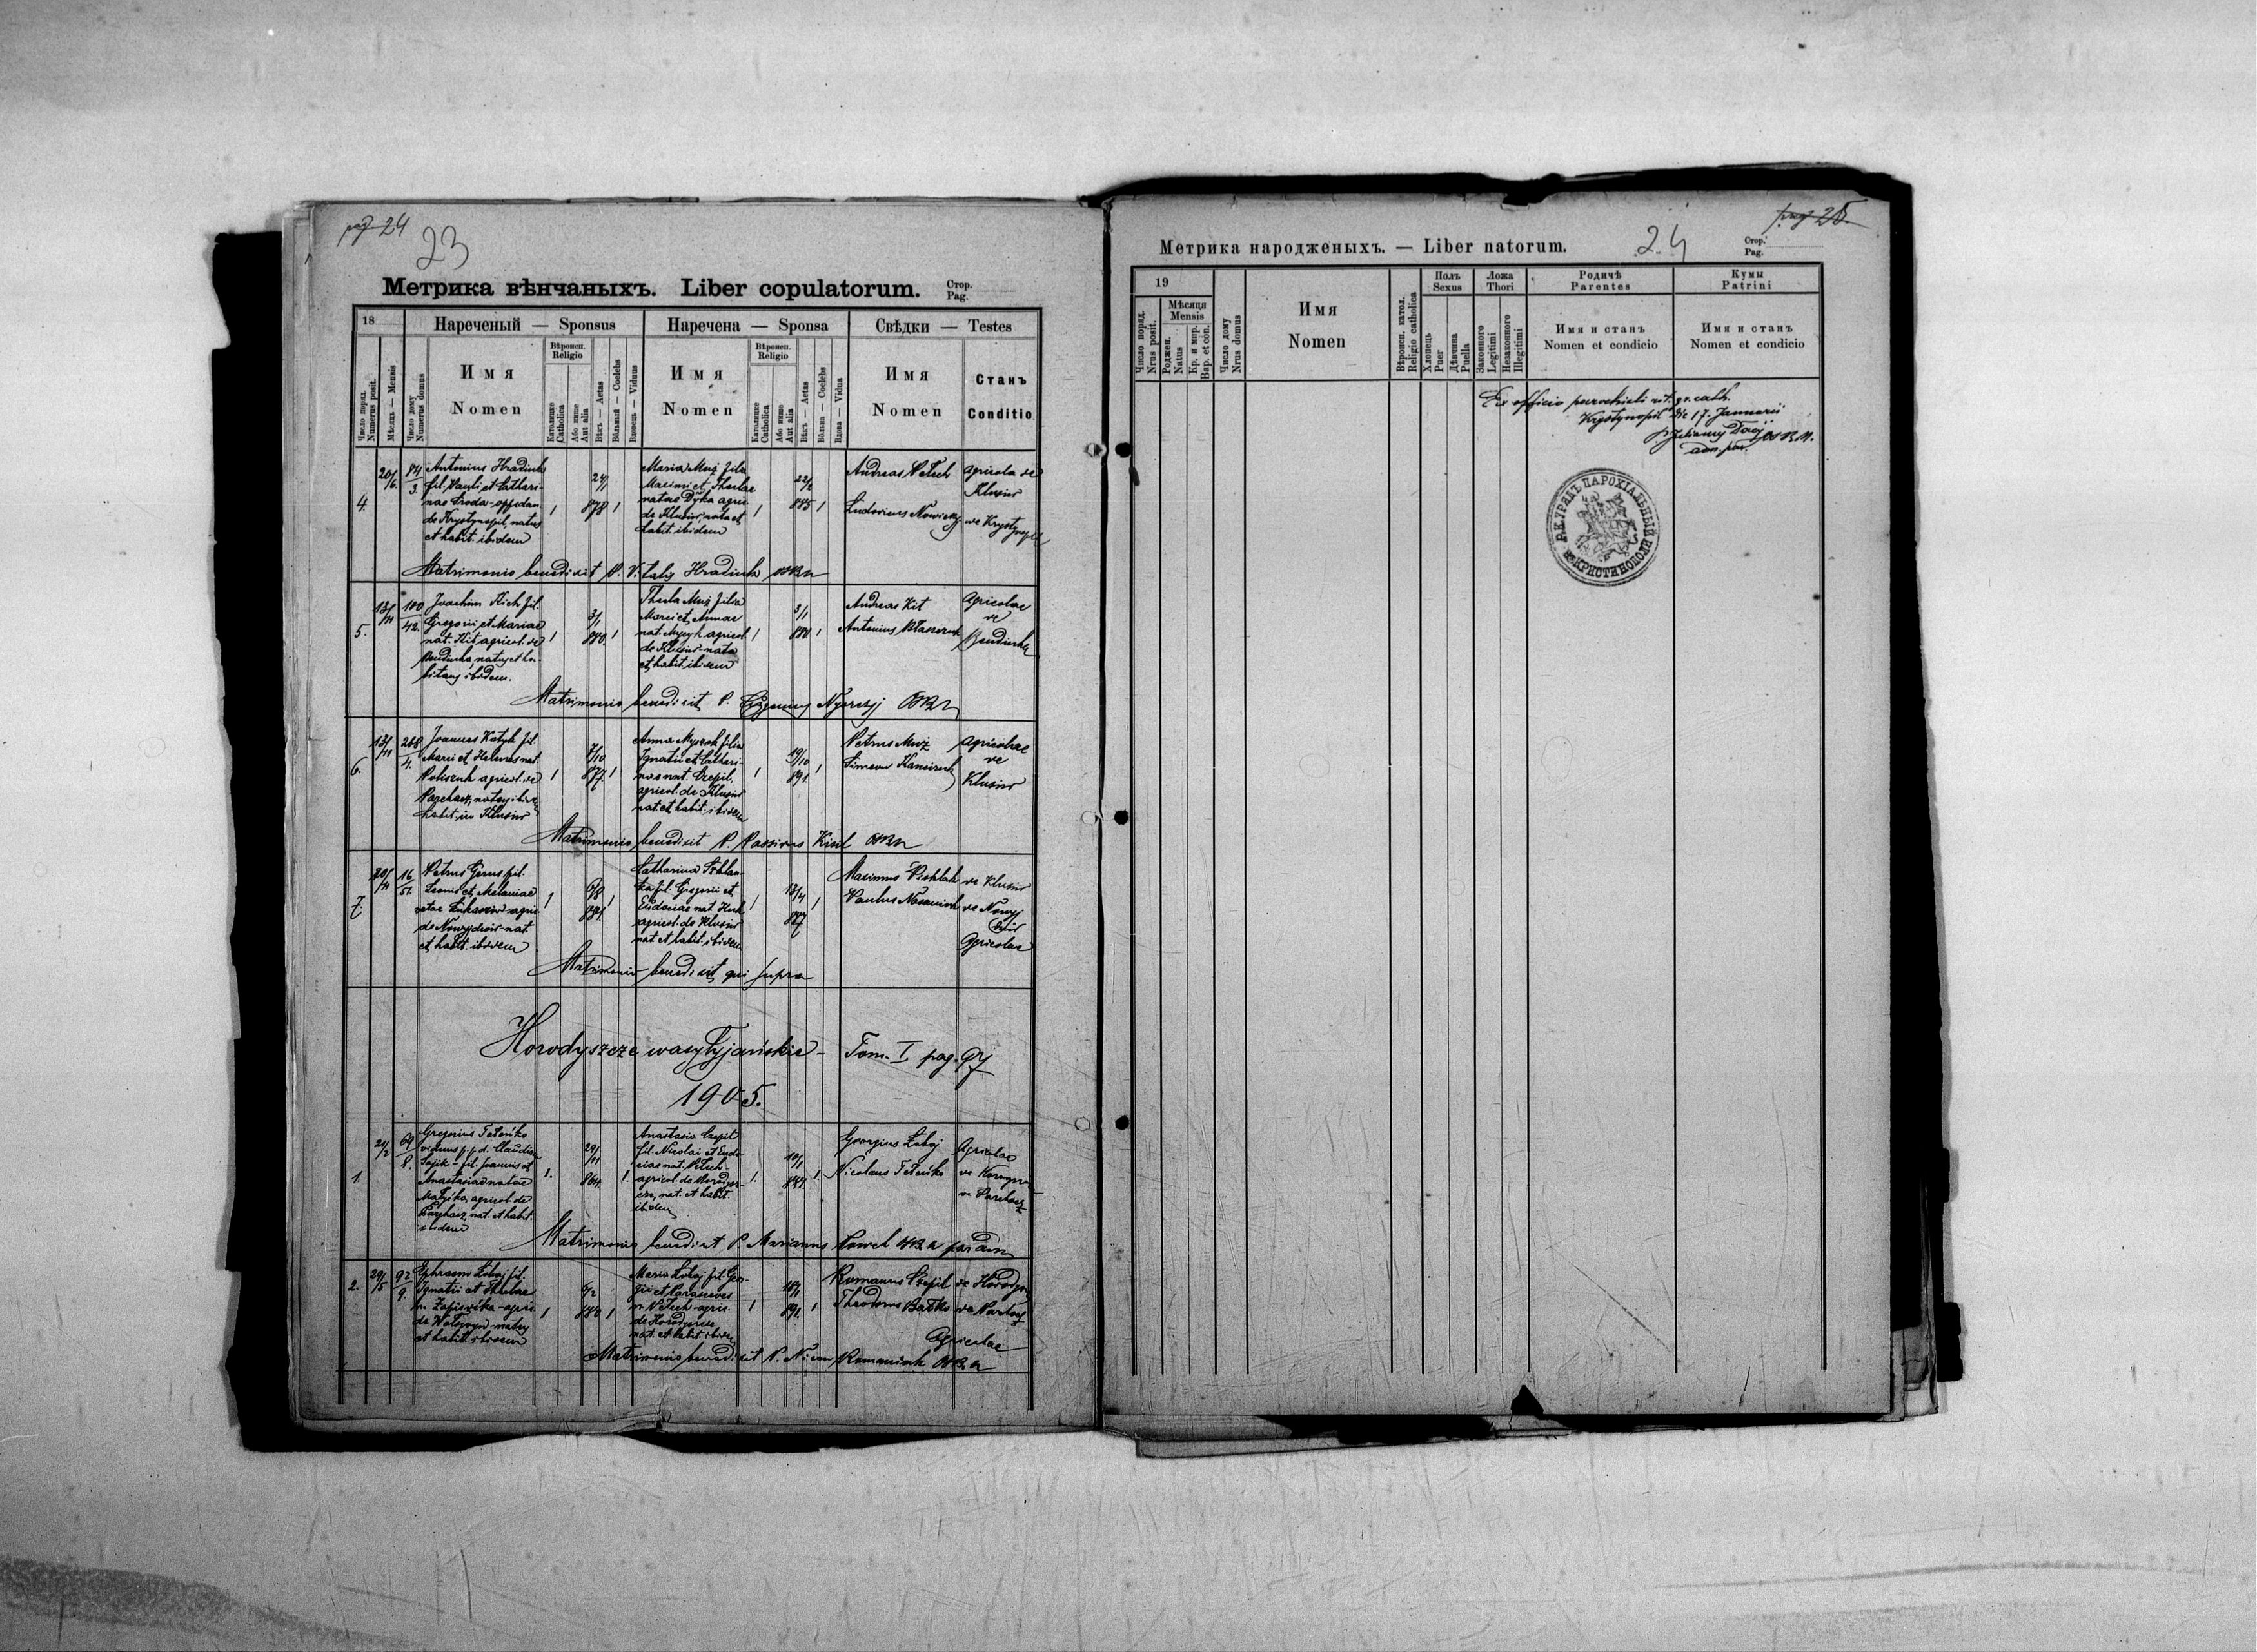 pag 24
23
Метрика вѣнчаныхъ. Liber copulatorum.
Стор.
Pag.
18
Нареченый — Sponsus
Наречена — Sponsa
Свѣдки — Testes
Число поряд.
Numerus posit.
Мѣсяць — Mensis
Число дому
Numerus domus
Имя
Nomen
Вѣроисп.
Religio
Католицке
Catholica
Або инше
Aut alia
Вѣкъ — Aetas
Вôльный — Coelebs
Вдовець — Viduus
Имя
Nomen
Вѣроисп.
Religio
Католицке
Catholica
Або инше
Aut alia
Вѣкъ — Aetas
Вôльна — Coelebs
Вдова — Vidua
Имя
Nomen
Станъ
Conditio
4.
20/6.
84/3.
Antonius Hradiuk
fil. Pauli et Cathari-
nae Sroda oppidan.
de Krystynopil, natus
et habit. ibidem
1
24/1
878
1
Maria Muż filia
Maximi et Theclae
natae Dyka agric.
de Klusiw nata et
habit. ibidem
1
22/2
885
1
Andreas Petech
Ludovicus Nowicky
agricola de
Klusiw
de Krystynopil
Matrimonio benedixit P. Vitalij Hradiuk OSBM
5.
13/11
100/42.
Joachim Kich fil.
Gregorii et Mariae
nat. Kit agricol. de
Bendiucha, natus et ha-
bitans ibidem.
1
3/1
880.
1
Thecla Muż filia
Marci et Annae
agricol.
de Klusiw nata
et habit. ibidem
1
3/1
1
Andreas Kit
Antonius
Agricolae
de
Bendiucha
Matrimonio benedixit P. OSBM
6.
13/11
268/4.
Joannes Kotyk fil.
Marci et Helenae nat.
Poliszuk agricol. de
natus ibidem
habit. in Klusiw
1
7/10
877.
1
Anna filia
Ignatii et Cathari-
nae nat. Czepil,
agricol. de Klusiw
nat. et habit. ibidem
1
19/10
891.
1
Petrus Muż
Simeon
Agricolae
de
Klusiw
Matrimonio benedixit P. Passivus Kisil OSBM
7.
20/11
16/51.
Petrus Gerus fil.
Leonis et Melaniae
natae agric.
de Nowydwir nat.
et habit. ibidem
1
6/8
881.
1
Catharina
fil. Gregorii et
Eudociae nat.
agricol. de Klusiw
nat et habit. ibidem
1
13/4
887
1
Maximus
Paulus
de Klusiw
de Nowyj
dwir
Agricolae
Matrimonio benedixit qui supra
Horodyszcze wasyłyjańskie - Tom. I pag. 97
1905.
1.
21/2
69/8.
Gregorius Teteńko
viduus p. p. d. Claudiam
fil. Joannis et
Anastasiae natae
agricol. de
Parchacz nat. et habit.
ibidem
1.
29/11
864.
1.
Anastasia Czepil
fil. Nicolai et Eudo-
ciae nat. Petech
agricol. de Horodysz-
cze, nat. et habit.
ibidem
1.
10/1
1.
Georgius Łobaj
Nicolaus Teteńko
Agricolae
de Horodyszcze
de Parchacz
Matrimonio benedixit P. Marianus Powch OSBM par adm
2.
29/5
92/9.
Ephraem Łobaj fil.
Ignatii et Theclae
n. agric.
de natus
et habit. ibidem
1
6/2
880
1
Maria Łobaj fil. Geor-
gii et Parasceves
n. Petech agric.
de Horodyszcze
nat. et habit. ibidem
1
18/1
891.
1
Romanus Czepil
Theodorus Bałko
de Horodyszcze
de Parchacz
Agricolae
Matrimonio benedixit P. Nicon Romaniuk OSBM
pag 25.
24
Метрика народженыхъ. — Liber natorum.
Стор.
Pag.
19
Число поряд.
Nrus posit.
Мѣсяця
Mensis
Роджен.
Natus
Кр. и мѵр.
Bap. et con.
Число дому
Nrus domus
Имя
Nomen
Вѣроисп. катол.
Religio catholica
Полъ
Sexus
Хлопець
Puer
Дѣвчина
Puella
Ложа
Thori
Законного
Legitimi
Незаконного
Illegitimi
Родичѣ
Parentes
Имя и станъ
Nomen et condicio
Кумы
Patrini
Имя и станъ
Nomen et condicio
Ex officio parochiali rit. gr. cath.
Krystynopil die 17. Januarii
OSBM.
adm. par.
Г.К. УРЯДЪ ПАРОХІАЛЬНЫЙ
въ КРИСТИНОПОЛИ